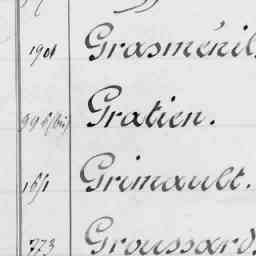 1901 Grasménil.
996 (bis) Gratien.
1651 Grimault.
773 Groussard.